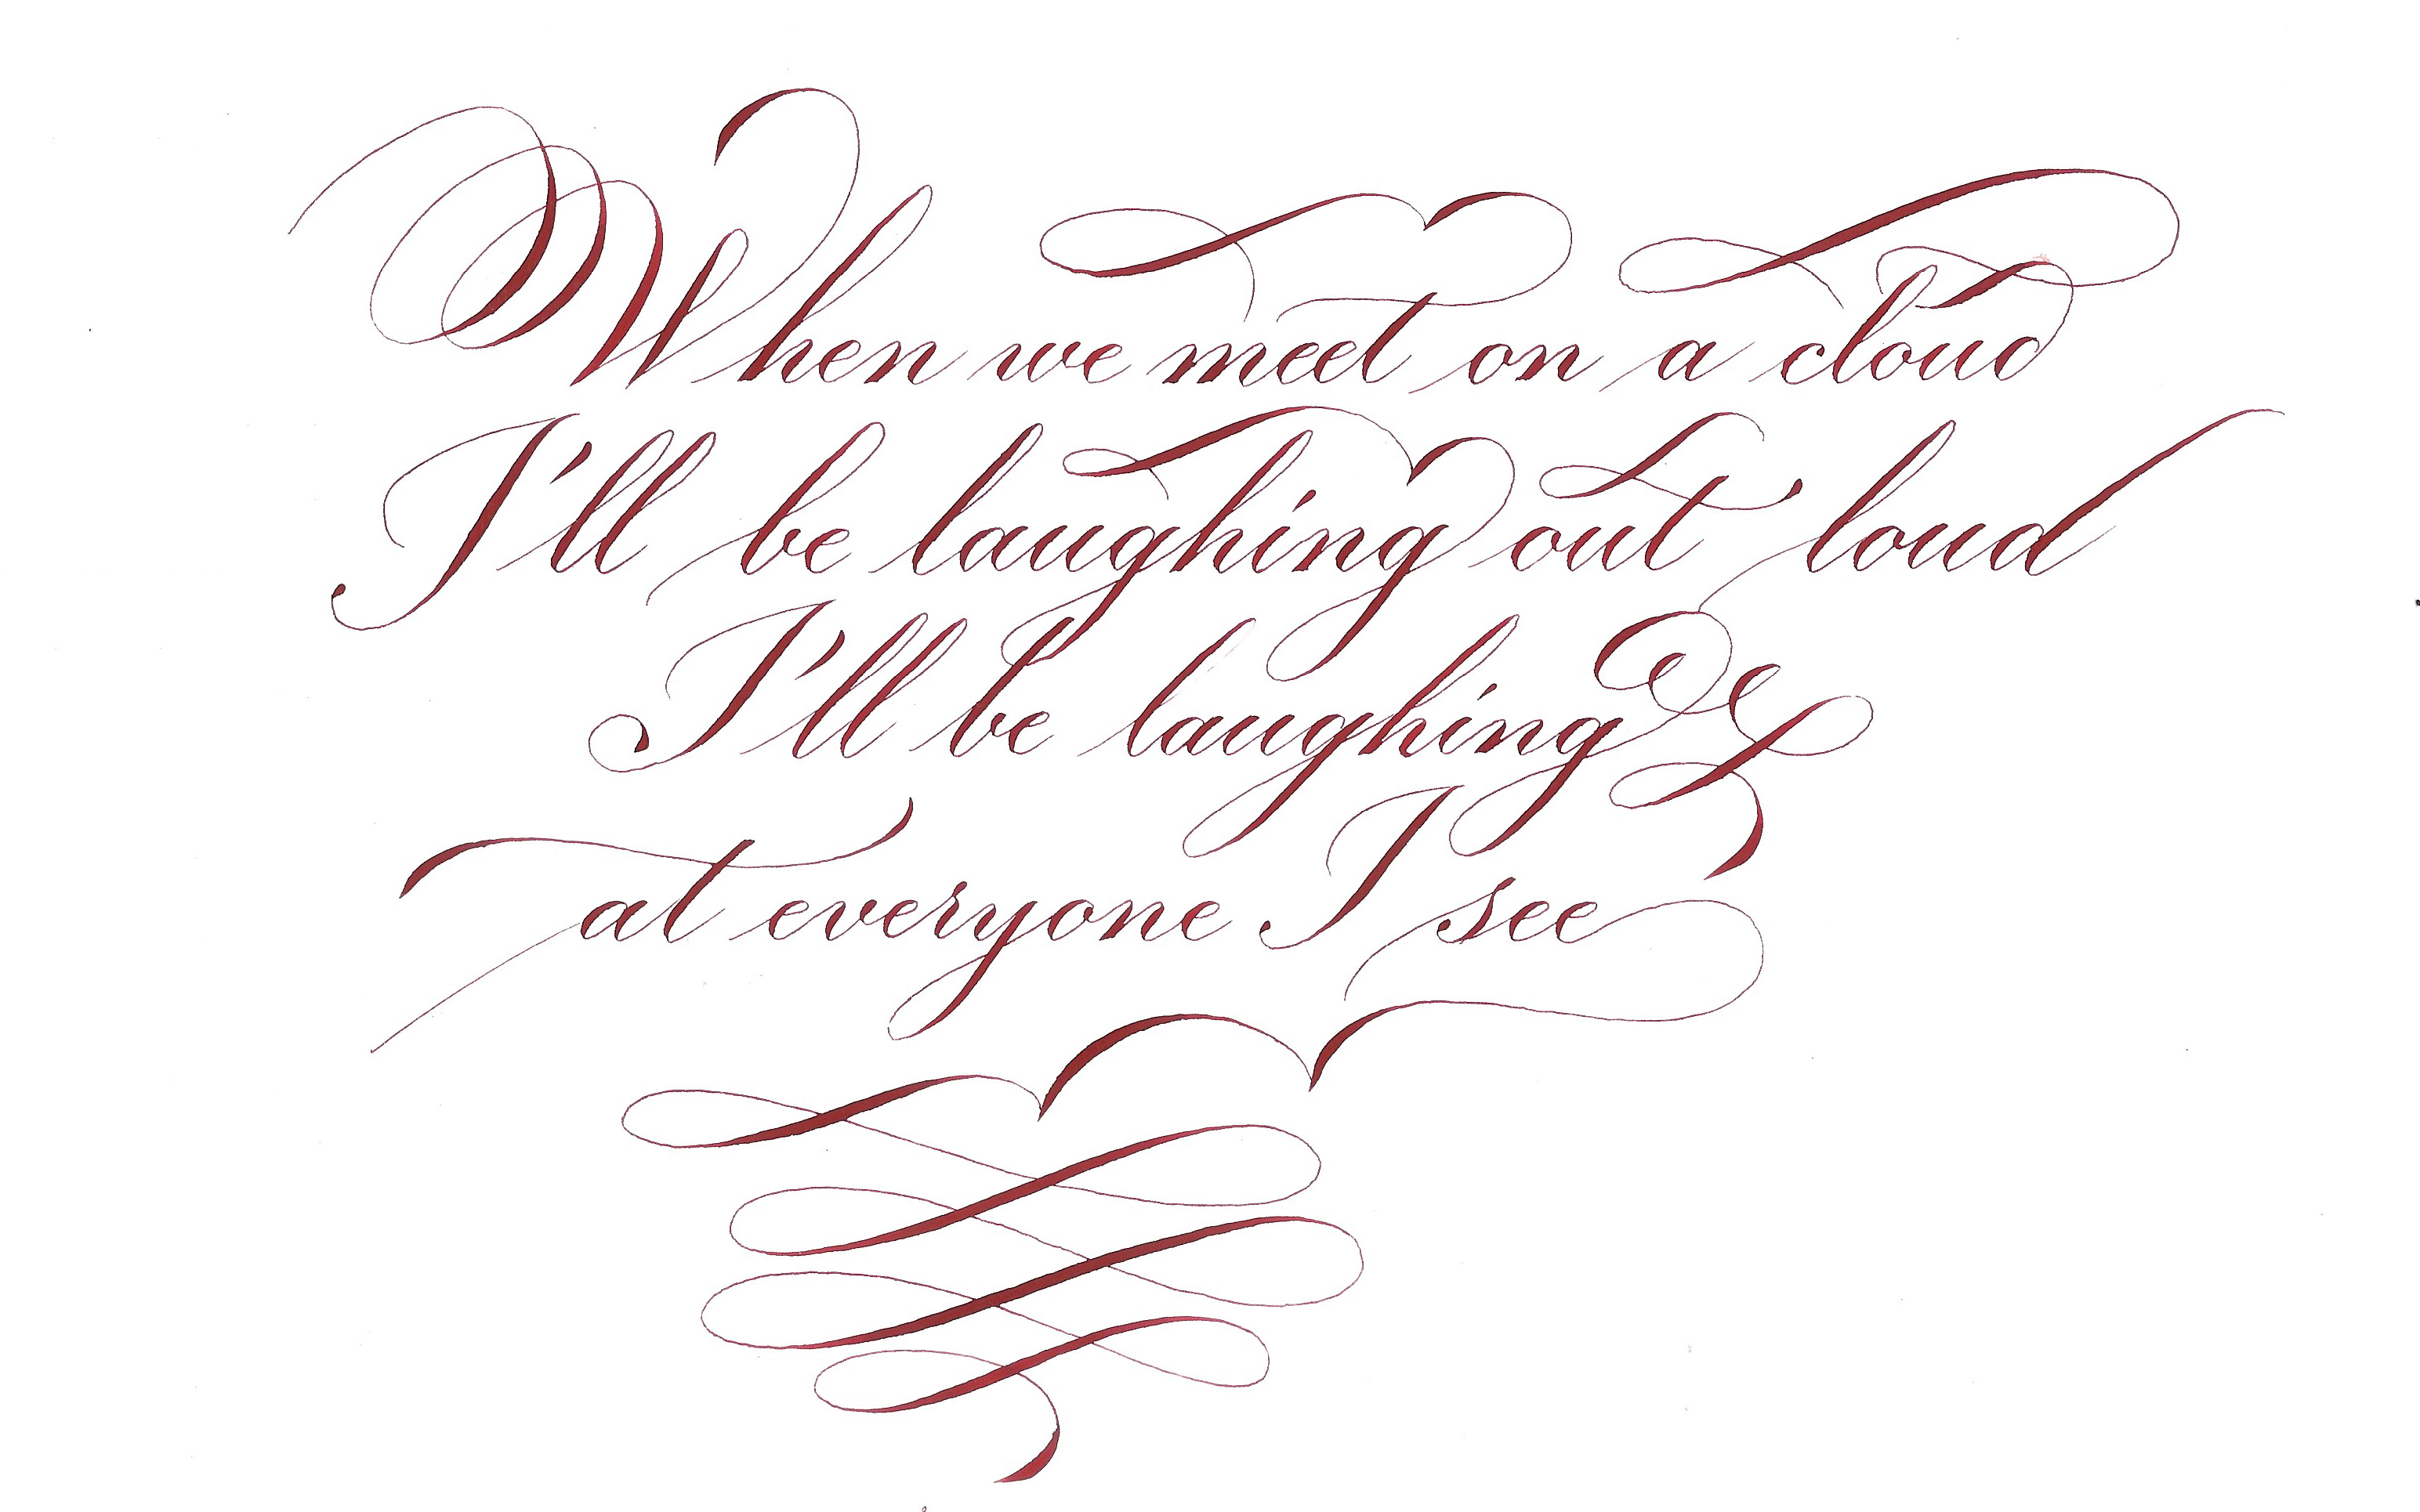 When we meet on a cloud
I'll be laughing out loud
I'll be laughing
at everyone I see